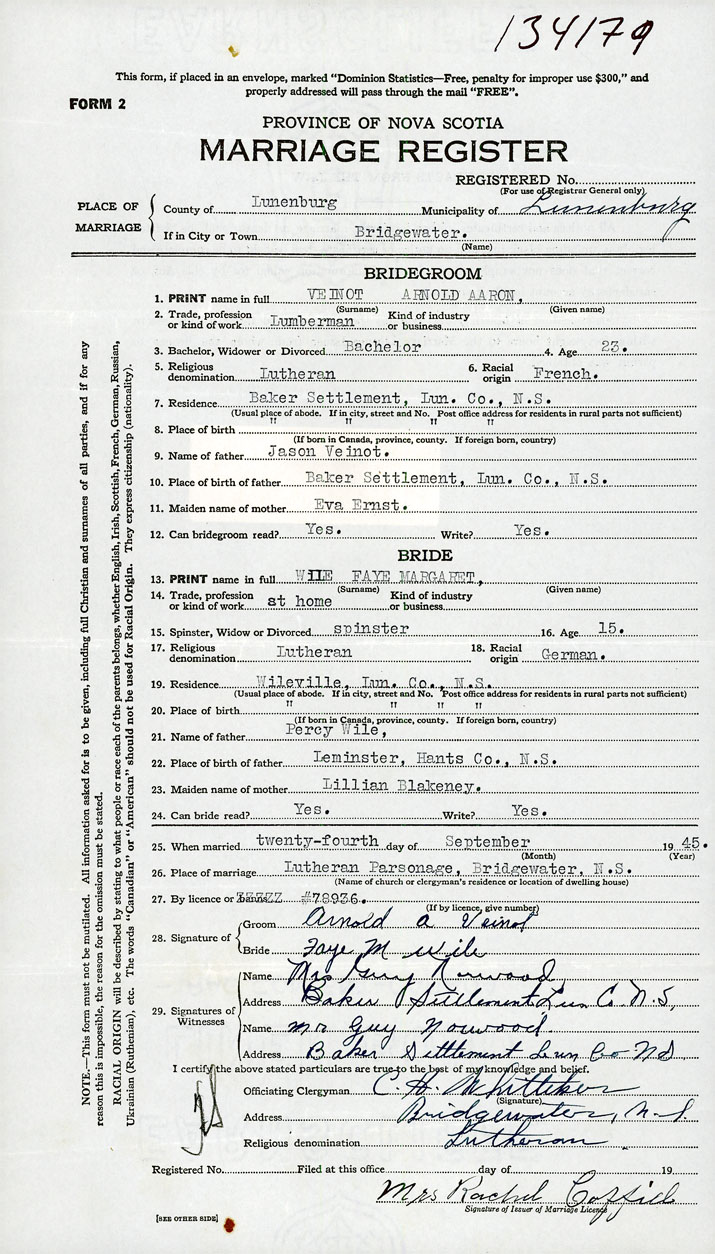 134179
This form, if placed in an envelope, marked "Dominion Statistics—Free, penalty for improper use $300," and
properly addressed will pass through the mail "FREE".
FORM 2
PROVINCE OF NOVA SCOTIA
MARRIAGE REGISTER
REGISTERED No.
(For use of Registrar General only)
PLACE OF MARRIAGE
County of Lunenburg Municipality of Lunenburg
If in City or Town Bridgewater.
(Name)
BRIDEGROOM
1. PRINT name in full VEINOT ARNOLD AARON,
(Surname) (Given name)
2. Trade, profession or kind of work Lumberman Kind of industry or business
3. Bachelor, Widower or Divorced Bachelor 4. Age 23.
5. Religious denomination Lutheran 6. Racial origin French.
7. Residence Baker Settlement, Lun. Co., N.S.
(Usual place of abode. If in city, street and No. Post office address for residents in rural parts not sufficient)
8. Place of birth " " " "
(If born in Canada, province, county. If foreign born, country)
9. Name of father Jason Veinot.
10. Place of birth of father Baker Settlement, Lun. Co., N.S.
11. Maiden name of mother Eva Ernst.
12. Can bridegroom read? Yes. Write? Yes.
BRIDE
13. PRINT name in full WILE FAYE MARGARET,
(Surname) (Given name)
14. Trade, profession or kind of work at home Kind of industry or business
15. Spinster, Widow or Divorced spinster 16. Age 15.
17. Religious denomination Lutheran 18. Racial origin German.
19. Residence Wileville, Lun. Co., N.S.
(Usual place of abode. If in city, street and No. Post office address for residents in rural parts not sufficient)
20. Place of birth " " " "
(If born in Canada, province, county. If foreign born, country)
21. Name of father Percy Wile,
22. Place of birth of father Leminster, Hants Co., N.S.
23. Maiden name of mother Lillian Blakeney.
24. Can bride read? Yes. Write? Yes.
25. When married twenty-fourth day of September 19 45.
(Month) (Year)
26. Place of marriage Lutheran Parsonage, Bridgewater, N.S.
(Name of church or clergyman's residence or location of dwelling house)
27. By licence or #78936.
(If by licence, give number)
28. Signature of
Groom Arnold A Veinot
Bride Faye M Wile
29. Signatures of Witnesses
Name Mrs Guy Norwood
Address Baker Settlement Lun Co. N.S,
Name Mr Guy Norwood.
Address Baker Settlement Lun Co NS
I certify the above stated particulars are true to the best of my knowledge and belief.
Officiating Clergyman C. H. Whitteker
(Signature)
Address Bridgewater, N.S.
Religious denomination Lutheran
Registered No. Filed at this office day of 19
Mrs Rachel
Signature of Issuer of Marriage Licence
[SEE OTHER SIDE]
NOTE.—This form must not be mutilated. All information asked for is to be given, including full Christian and surnames of all parties, and if for any
reason this is impossible, the reason for the omission must be stated.
RACIAL ORIGIN will be described by stating to what people or race each of the parents belongs, whether English, Irish, Scottish, French, German, Russian,
Ukrainian (Ruthenian), etc. The words "Canadian" or "American" should not be used for Racial Origin. They express citizenship (nationality).